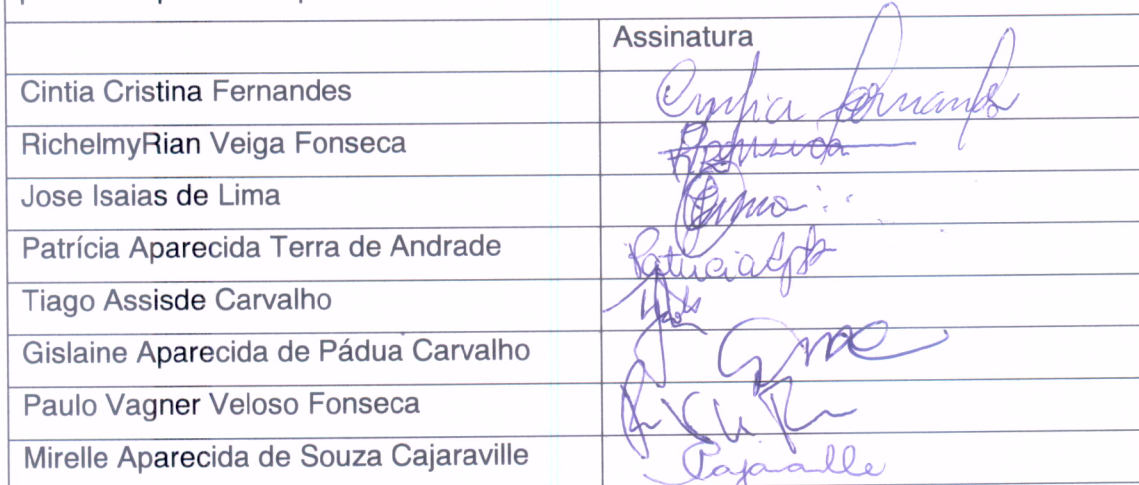 Assinatura
Cintia Cristina Fernandes Cynthia Fernandes
RichelmyRian Veiga Fonseca
Jose Isaias de Lima
Patrícia Aparecida Terra de Andrade Patricia
Tiago Assisde Carvalho
Gislaine Aparecida de Pádua Carvalho
Paulo Vagner Veloso Fonseca
Mirelle Aparecida de Souza Cajaraville Cajaraville